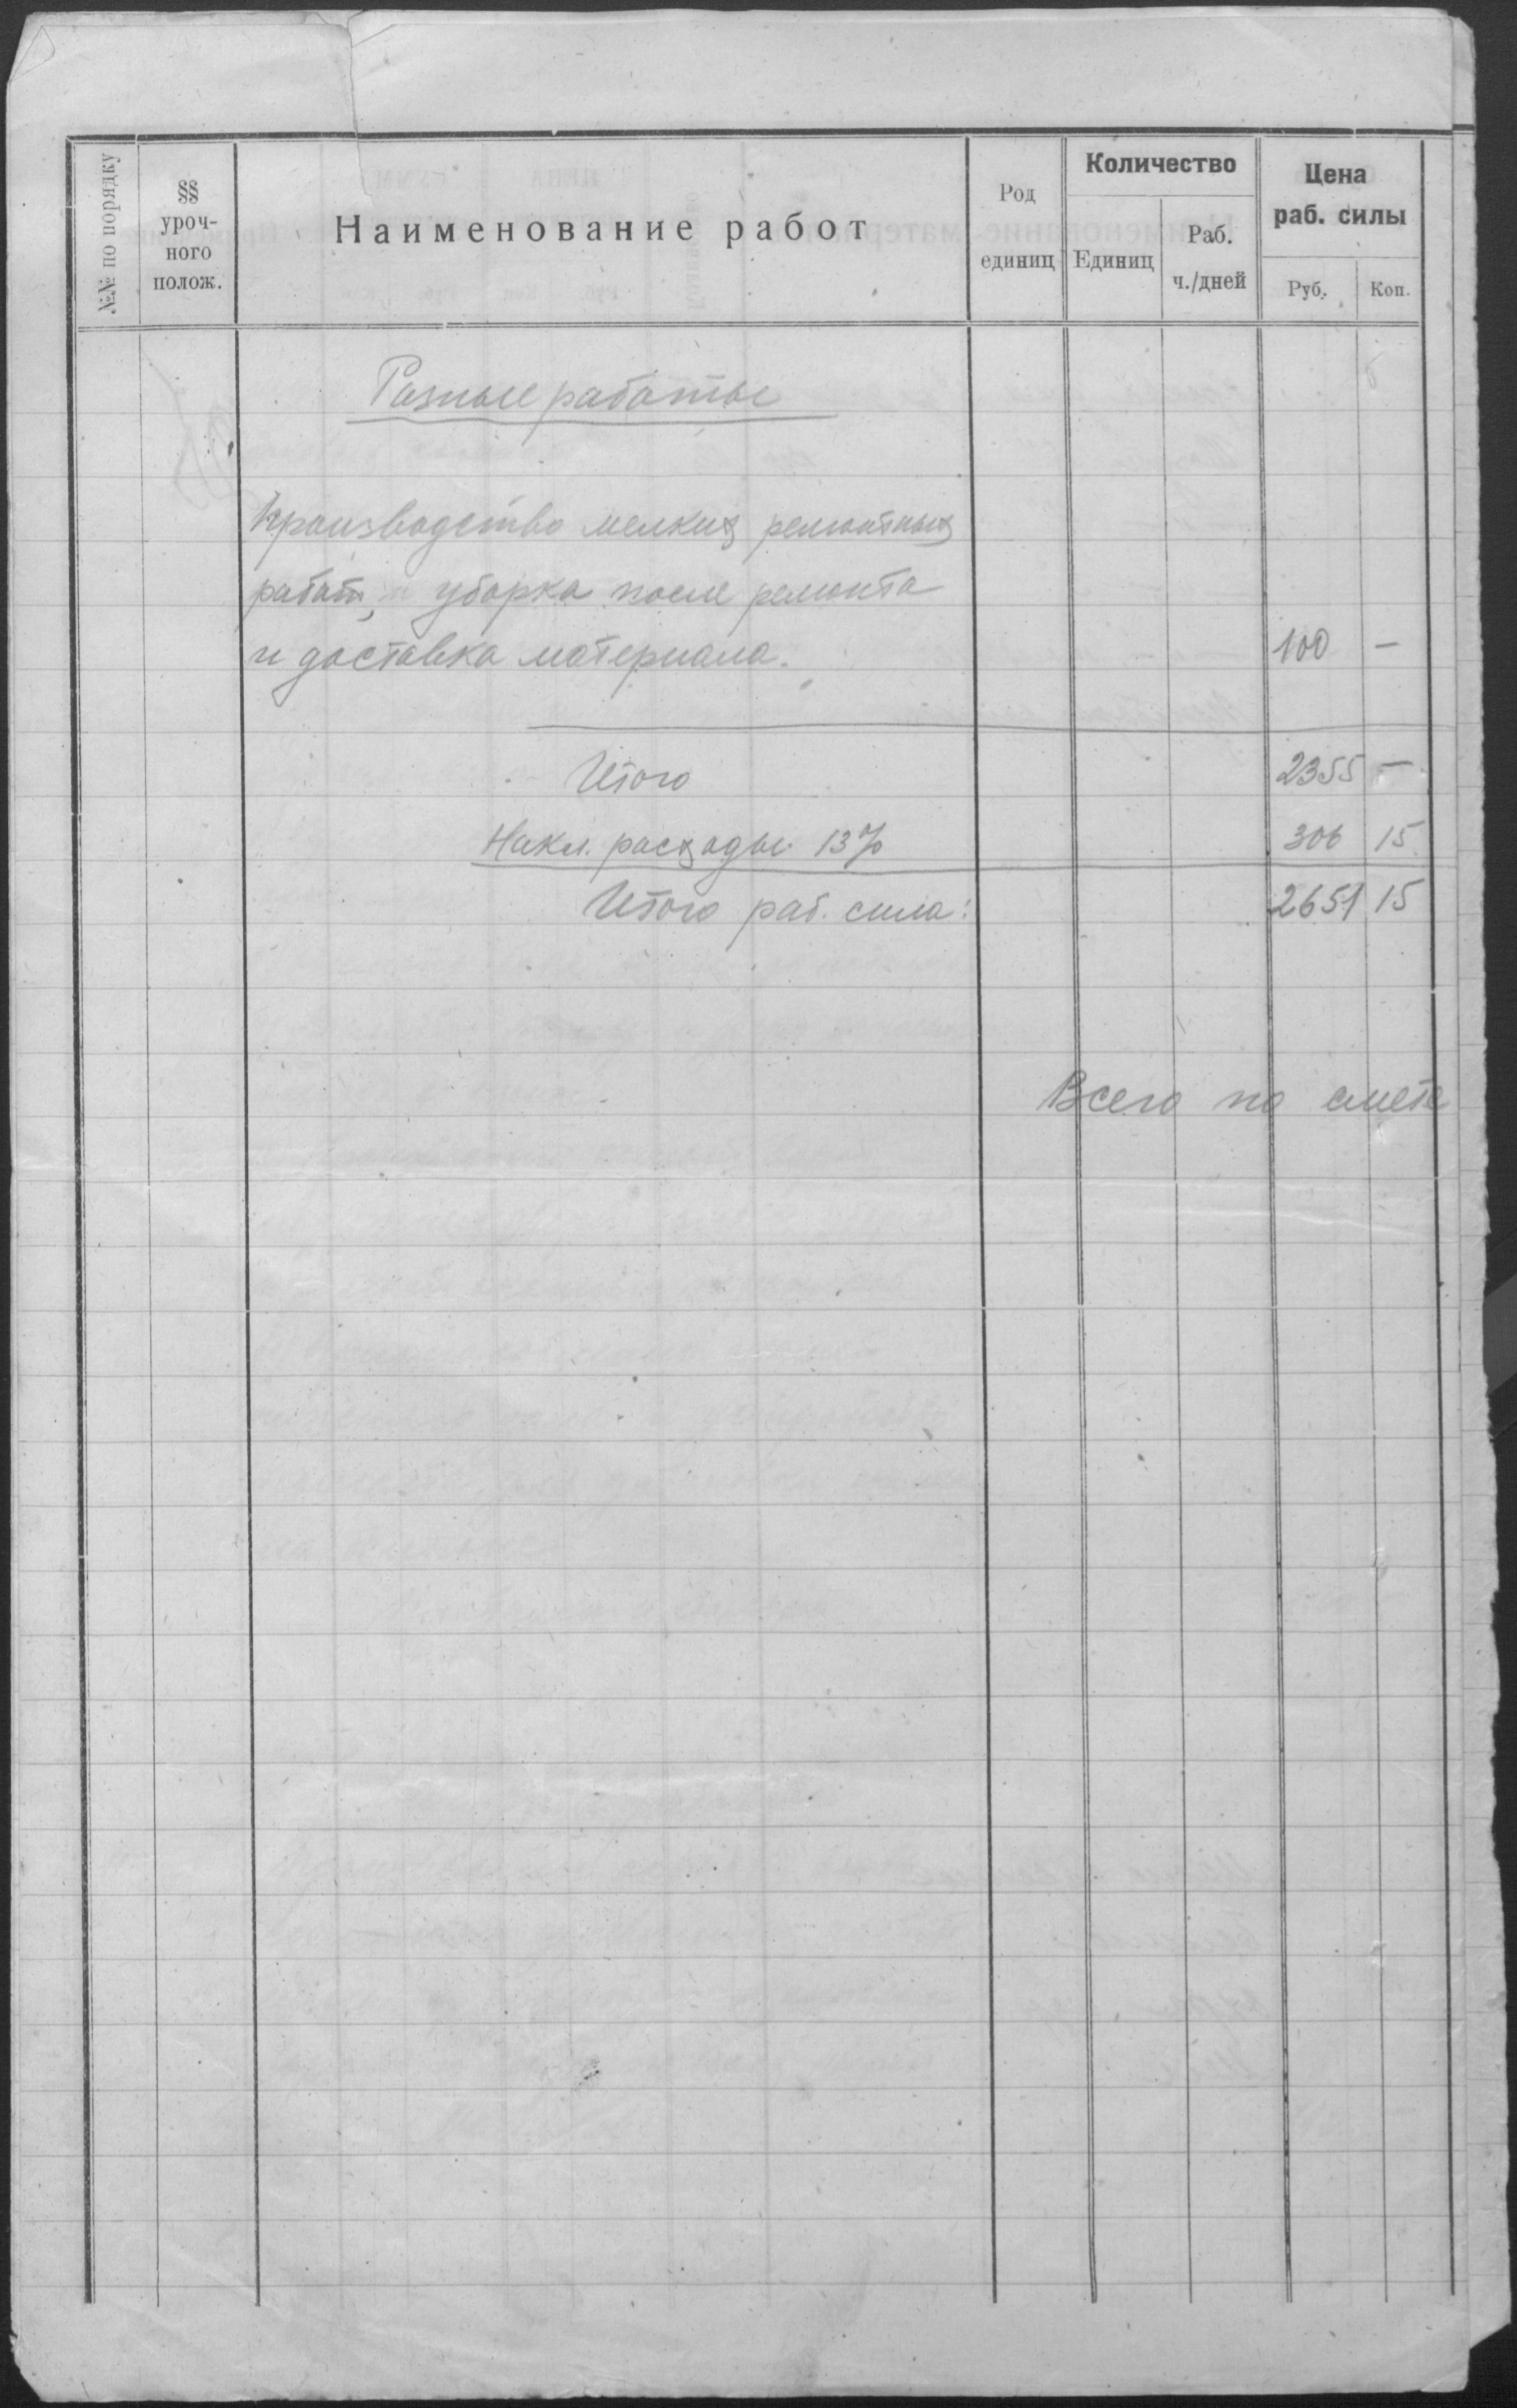 №№ по порядку
§§ уроч-ного полож.
Наименование работ
Род единиц
Количество
Единиц
Раб. ч./дней
Цена раб. силы
Руб.
Коп.
Разные работы
Производство мелких ремонтных
работ, уборка после ремонта
и доставка материала. 100 —
Итого 2355 —
Накл. расходы 13% 306 15
Итого раб. сила: 2651 15
Всего по смете